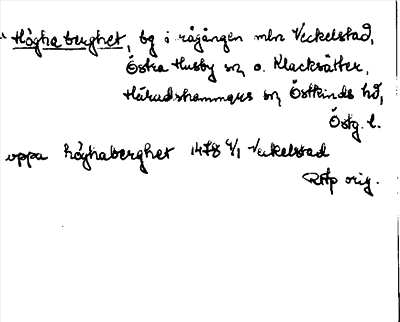 Högha berghet, bg i rågången mln Veckelstad,
Östra Husby sn, o. Klacksätter,
Häradshammars sn, Östkinds hd,
Östg. l.
uppa höghaberghet 1478 4/1 Veckelstad
RAp orig.